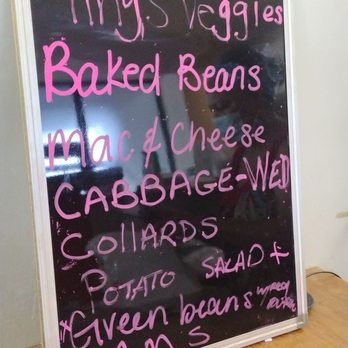 Veggies
Baked Beans
Mac & Cheese
CABBAGE-WED
Collards
POTATO SALAD +
*Green beans